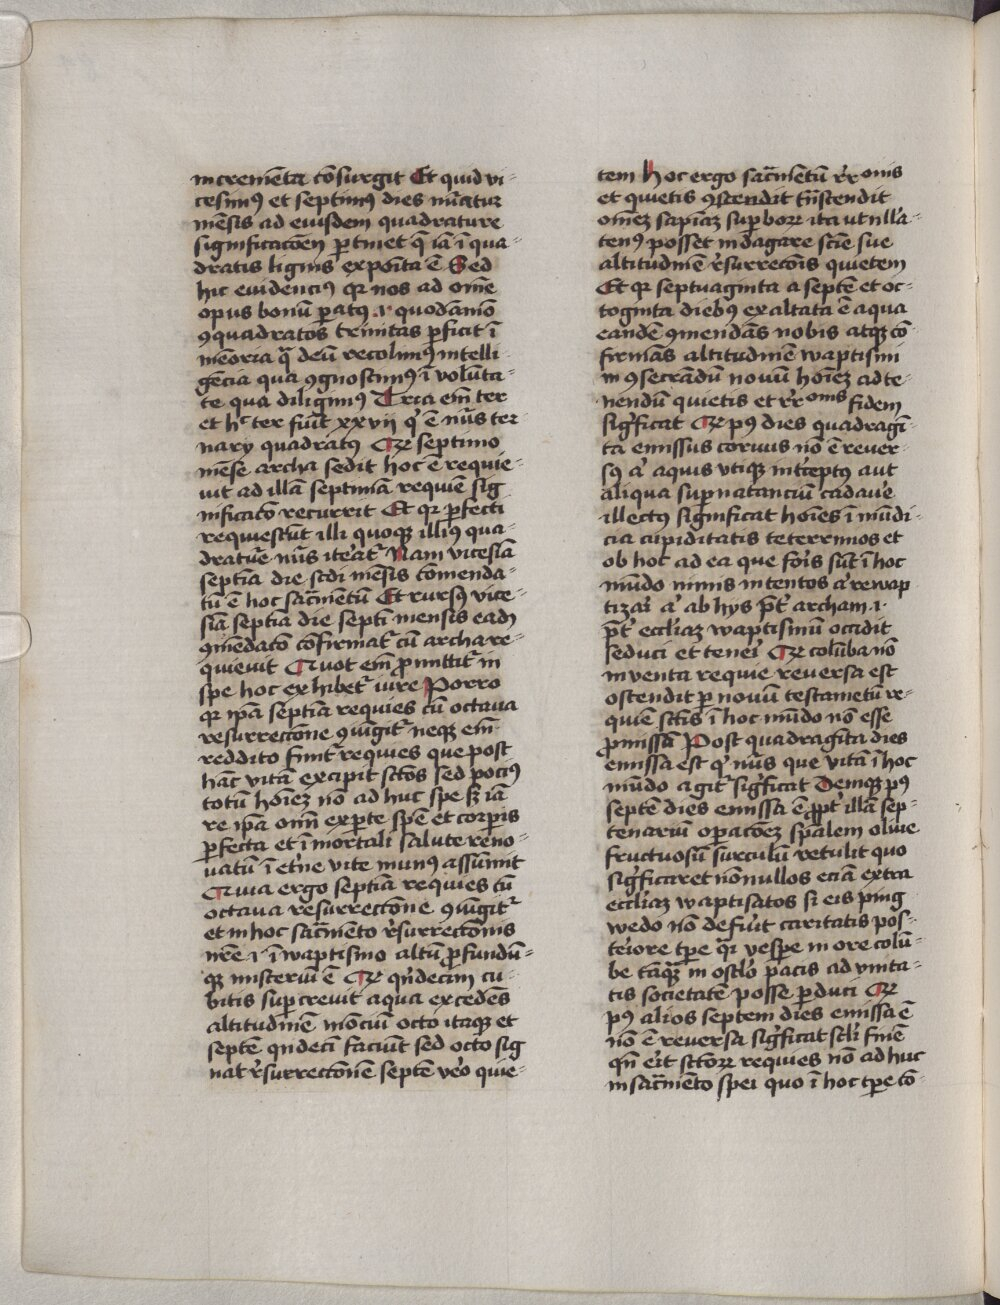 incremēta cōsurgit Et quid vi⸗
cesimꝰ et septimꝰ dies nūcatur
mēsis ad eiusdem quadrature
significacōem ꝑtinet q̄ iā ī qua⸗
dratis lignis exposita ē Sed
hic euidenciꝰ qꝛ nos ad oīne
opus bonū ꝑatꝰ .i. quodāmō
ꝯquadratos trinitas ꝑficit ī
memoria q̄ deū recolimꝰ intelli⸗
gēcia qua ꝯgnoscimꝰ ī volūta⸗
te qua diligimꝰ Tria em̄ ter
et hᶜ ter fiūt xxvij qᵈ ē nūs ter⸗
nary quadratꝰ Qꝛ septimo
mēse archa sedit hoc ē requie⸗
uit ad illā septimā requiē sig
nificatō recurrit Et qꝛ ꝑfecti
requiescūt illi quoqꝫ illiꝰ qua⸗
drature nūs iteratᷣ Nam vicesīa
septīa die scdi mēsis cōmenda⸗
tū ē hoc sacᷓmētū Et rursꝰ vice⸗
sīa septīa die septī mensis eadꝫ
ꝯmēdacō cōfirmatᷣ cū archa re⸗
quieuit Quot em̄ ꝓmittitᷣ in
spe hoc exhibetᷣ iure Porro
qꝛ ip̄a septīa requies cū octaua
resurrectione ꝯiūgitᷣ neqꝫ em̄
reddito finitᷣ requies que post
hāc vitā excipit sctōs sed pociꝰ
totū hoīeꝫ nō ad huc spe sꝫ iā
re ip̄a omī exꝑte spē et corꝑis
ꝑfecta et ī mortali salute reno⸗
uatū ī etne vite munꝰ assūmit
Quia ergo septīa requies cū
octaua resurrectōne ꝯiūgitᷣ
et in hoc sacᷓmēto rᷤsurrectōnis
nrē .i. ī waptismo altū ꝓfundū⸗
qꝫ misteriū ē Qꝛ qⁱndecim cu⸗
bitis suꝑcreuit aqua excedēs
altitudinē mōciū octo itaqꝫ et
septē qⁱndeci faciūt sed octo sig
nat rᷤsurrectōnem septē vᷤo quie⸗
tem Hoc ergo sacᷓmētū rᷤrōnis
et quietis ꝯscendit tⁿscendit
omēꝫ sapiāꝫ suꝑborꝝ ita ut nlla⸗
tenꝰ posset indagare scīe sue
altitudinē rᷤsurrectōis quietem
Et qꝛ septuaginta a septē et oc⸗
toginta diebꝰ exaltata ē aqua
eandē ꝯmendās nobis atqꝫ cō⸗
firmās altitudinē waptismi
in ꝯsecrādū nouū hoīeꝫ ad te⸗
nendū quietis et rᷤrōnis fidem
sigᷤficat Qꝛ pꝰ dies quadragī⸗
ta emissus coruus nō ē reuer⸗
sꝰ aᷤ aquis vtiqꝫ int̄ceptꝰ aut
aliqua suꝑnatanciū cadaūe
illectꝰ significat hoīes ī mūdi⸗
cia cupiditatis teterrimos et
ob hoc ad ea que foīs sūt ī hoc
mūdo nimis intentos aᷤ rewap
tizarᷤ aᷤ ab hys p̄t archam .i.
p̄t eccliaꝫ waptismū occidit
seduci et tenerᷤ Qꝛ colūba nō
inventa requie reuersa est
ostendit ꝑ nouū testametū re⸗
quiē sctīs ī hoc mūdo nō esse
ꝓmissā Post quadragīta dies
emissa est qꝫ nūs que vitā ī hoc
mūdo agitᷣ sigᷤficat Deniqꝫ pꝰ
septē dies emissa ē ꝓpt̄ illā sep⸗
tenariū oꝑacōeꝫ sp̄alem oliue
fructuosū surculū retulit quo
sigᷤficaret nōnullos eciā extra
eccliaꝫ waptisatos si eis ping
wedo nō defuīt caritatis pos⸗
terᷤiore tꝑe qᷤi vesꝑe in ore colū⸗
be tāqꝫ in ostlo pacis ad vnita⸗
tis societatē posse ꝑduci Qꝛ
pꝰ alios septem dies emissa ē
nō ē reuersa sigᷤficat scli finē
qn̄ erit sctōrꝝ requies nō ad huc
in sacᷓmēto spei quo ī hoc tꝑe cō⸗